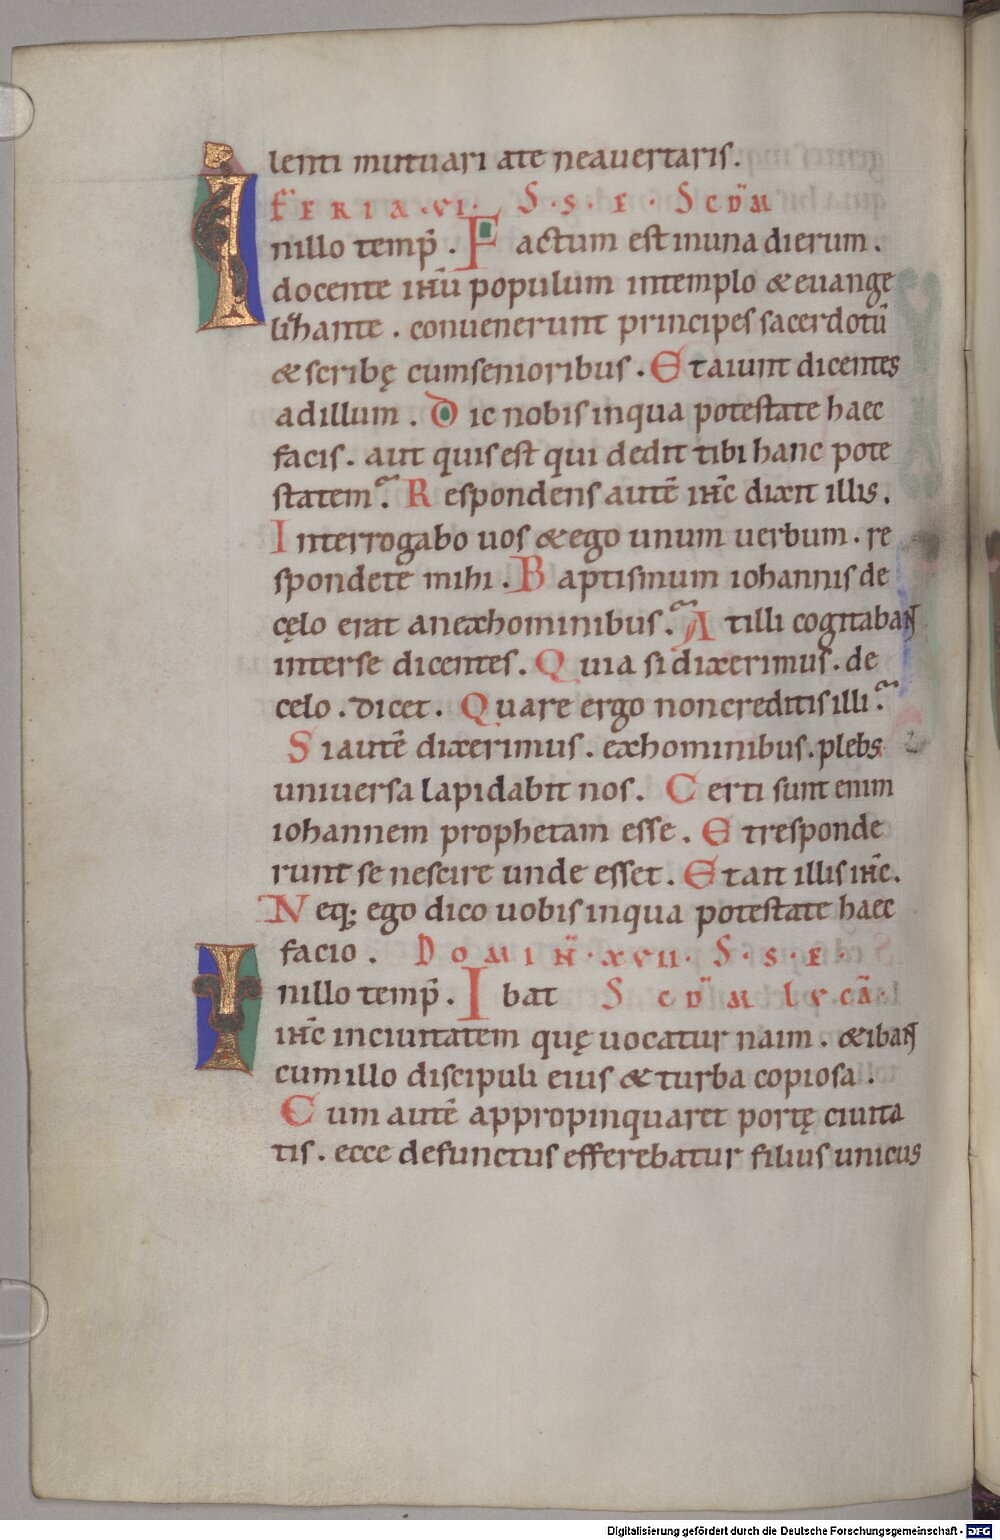 lenti mutuari a te ne auertaris.
FERIA · VI · S · S · E · SCD̄M
I nillo temp̄. Factum est in una dierum.
docente ih̄u populum in templo & euange
lizante. conuenerunt principes sacerdotū
& scribę cum senioribus. Et aiunt dicentes
ad illum. Dic nobis in qua potestate haec
facis. aut quis est qui dedit tibi hanc pote
statem? Respondens autē ih̄c dixit illis.
Interrogabo uos & ego unum uerbum. re
spondete mihi. Baptismum iohannis de
cęlo erat an ex hominibus? At illi cogitabant
inter se dicentes. Quia si dixerimus. de
celo. dicet. Quare ergo non creditis illi?
Si autē dixerimus. ex hominibus. plebs
uniuersa lapidabit nos. Certi sunt enim
iohannem prophetam esse. Et responde
runt se nescire unde esset. Et ait illis ih̄c.
Neq; ego dico uobis in qua potestate haec
facio. DOMIN̄ · XVII · S · S · E ·
I nillo temp̄. Ibat SCD̄M LVCĀ
ih̄c in ciuitatem quę uocatur naim. & ibant
cum illo discipuli eius & turba copiosa.
Cum autē appropinquaret portę ciuita
tis. ecce defunctus efferebatur filius unicus
Digitalisierung gefördert durch die Deutsche Forschungsgemeinschaft - DFG